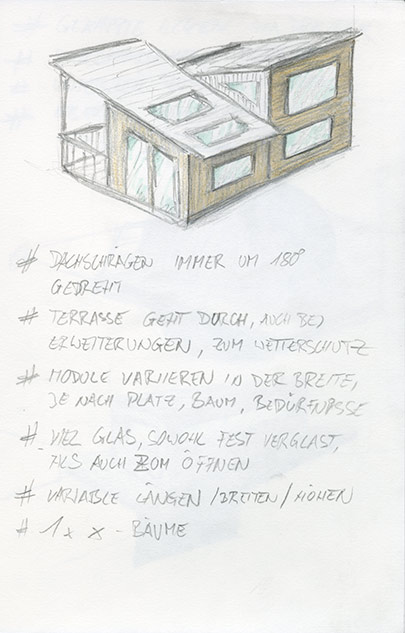 # DACHSCHRÄGEN IMMER UM 180°
GEDREHT
# TERRASSE GEHT DURCH, AUCH BEI
ERWEITERUNGEN, ZUM WETTERSCHUTZ
# MODULE VARIIEREN IN DER BREITE,
JE NACH PLATZ, BAUM, BEDÜRFNISSE
# VIEL GLAS, SOWOHL FEST VERGLAST,
ALS AUCH ZUM ÖFFNEN
# VARIABLE LÄNGEN/BREITEN/HÖHEN
# 1 x x - BÄUME